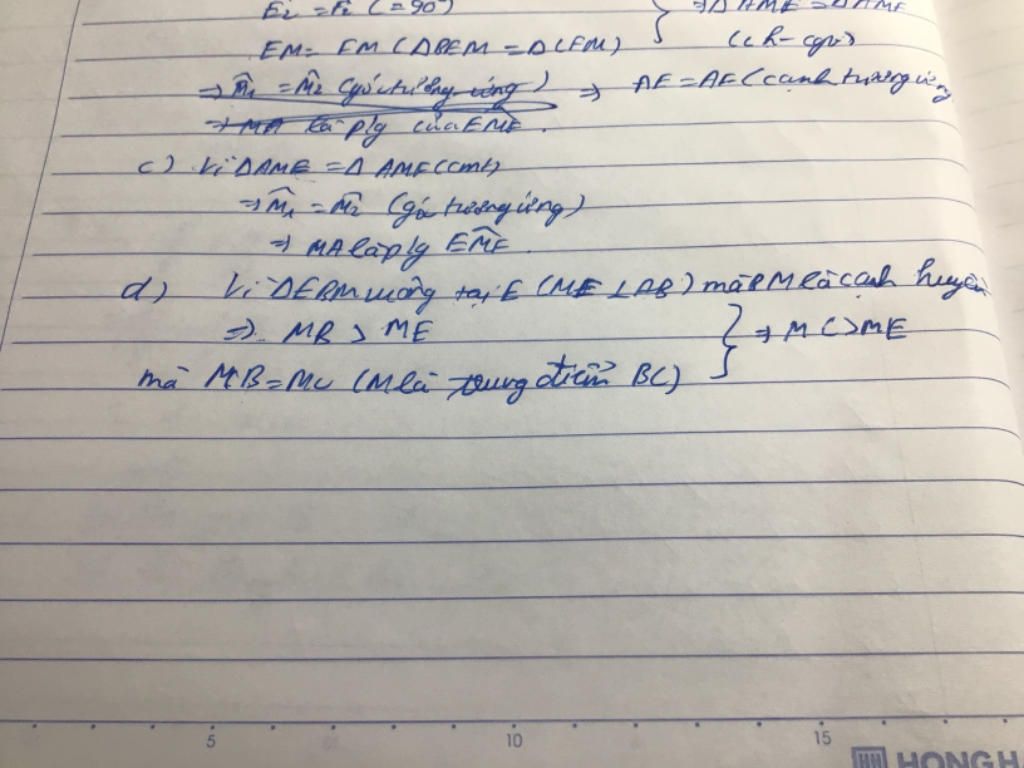 Ê₂ = F̂₂ (= 90°) } ⇒ Δ AME = Δ AMF
EM = FM (ΔBEM = ΔCFM) (ch - cgv)
⇒ M̂₁ = M̂₂ (góc tương ứng) ⇒ AE = AF (cạnh tương ứng
⇒ MA là p/g của EMF.
c) Vì ΔAME = Δ AMF (cmt)
⇒ M̂₁ = M̂₂ (góc tương ứng)
⇒ MA là p/g EMF.
d) Vì ΔEBM vuông tại E (ME ⊥ AB) mà BM là cạnh huyền
⇒ MB > ME } ⇒ MC > ME
mà MB = MC (M là trung điểm BC)
5 10 15
HONG H